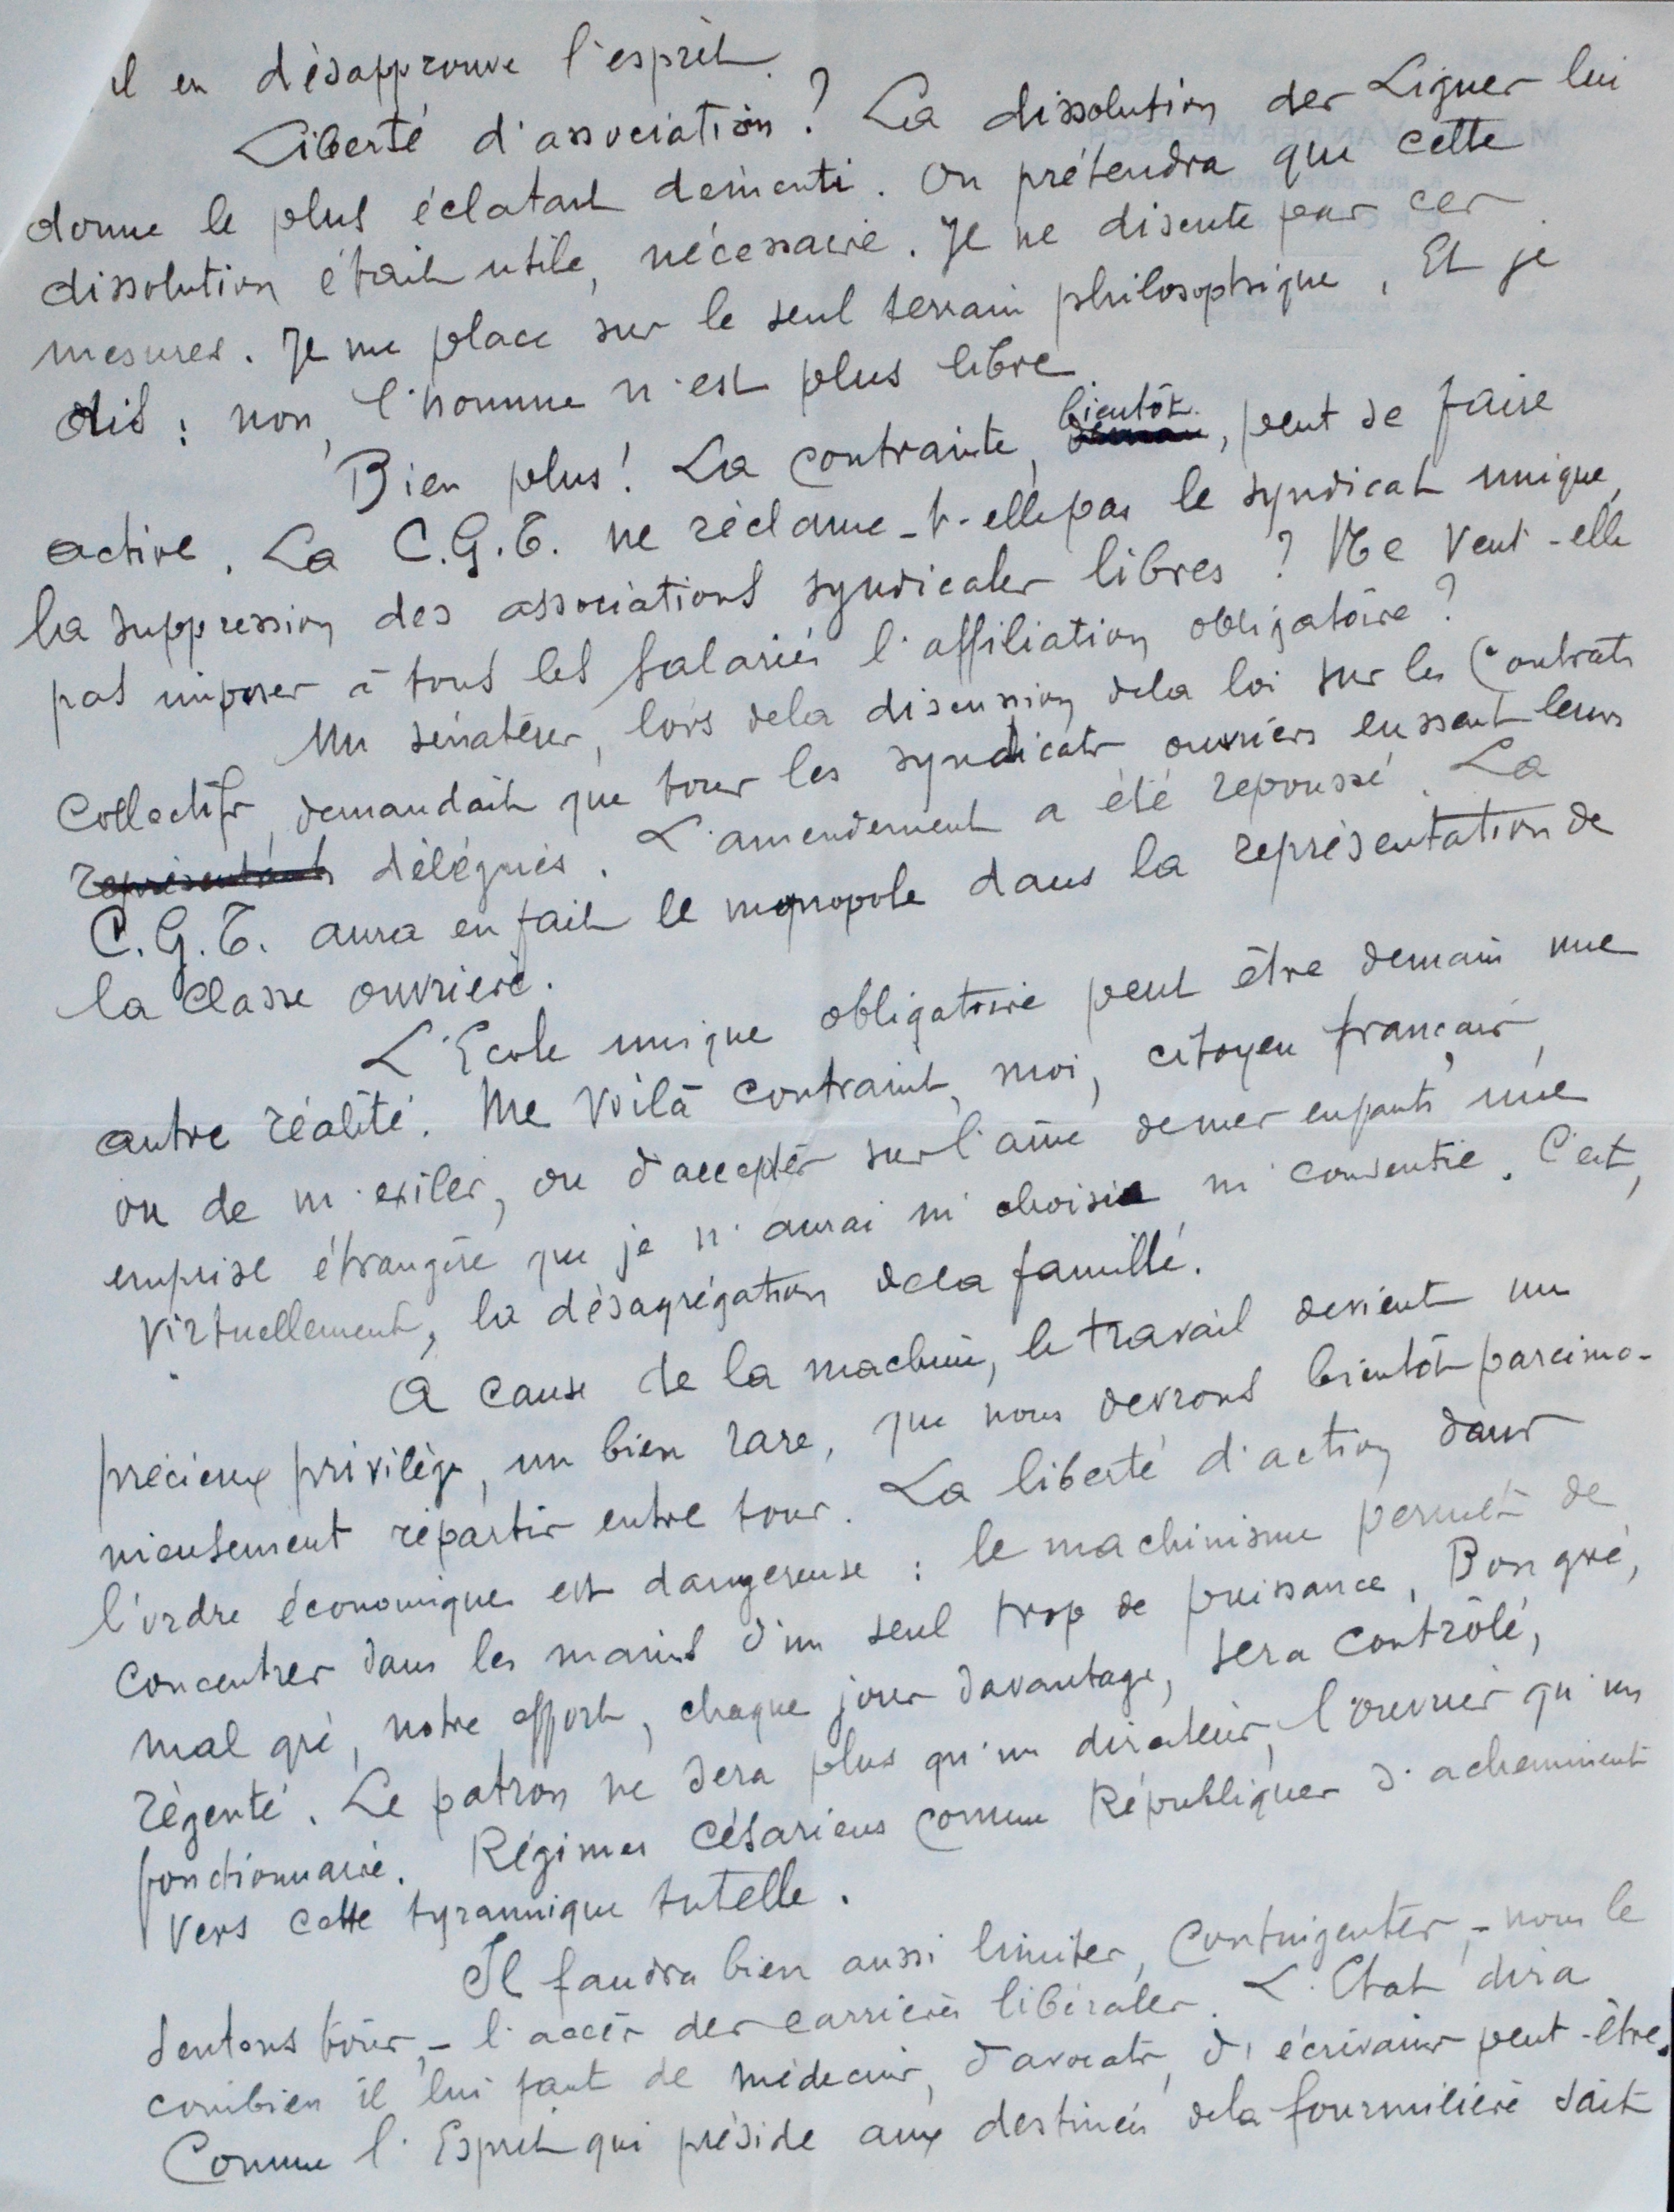 il en désapprouve l'esprit.
Liberté d'association? La dissolution des Ligues lui
donne le plus éclatant démenti. On prétendra que cette
dissolution était utile, nécessaire. Je ne discute pas ces
mesures. Je me place sur le seul terrain philosophique, Et je
dis : non, l'homme n'est plus libre
Bien plus! La contrainte, bientôt, peut se faire
active. La C.G.T. ne réclame-t-elle pas le syndicat unique,
la suppression des associations syndicales libres? Ne veut-elle
pas imposer à tous les salariés l'affiliation obligatoire?
Un sénateur, lors de la discussion de la loi sur les Contrats
Collectifs, demandait que tous les syndicats ouvriers eussent leurs
représentants délégués. L'amendement a été repoussé. La
C.G.T. aura en fait le monopole dans la représentation de
la Classe ouvrière.
L'Ecole unique obligatoire peut être demain une
autre réalité. Me voilà contraint, moi, citoyen français,
ou de m'exiler, ou d'accepter sur l'âme de mes enfants une
emprise étrangère que je n'aurai ni choisie ni consentie. C'est,
virtuellement, la désagrégation de la famille.
A cause de la machine, le travail devient un
précieux privilège, un bien rare, que nous devrons bientôt parcimo-
nieusement répartir entre tous. La liberté d'action dans
l'ordre économique est dangereuse : le machinisme permet de
concentrer dans les mains d'un seul trop de puissance. Bon gré,
mal gré, notre effort, chaque jour davantage, sera contrôlé,
régenté. Le patron ne sera plus qu'un directeur, l'ouvrier qu'un
fonctionnaire. Régimes césariens comme Républiques s'acheminent
vers cette tyrannique tutelle.
Il faudra bien aussi limiter, contingenter, - nous le
sentons tous, - l'accès des carrières libérales. L'Etat dira
combien il lui faut de médecins, d'avocats, d'écrivains peut-être.
Comme l'Esprit qui préside aux destinées de la fourmilière sait